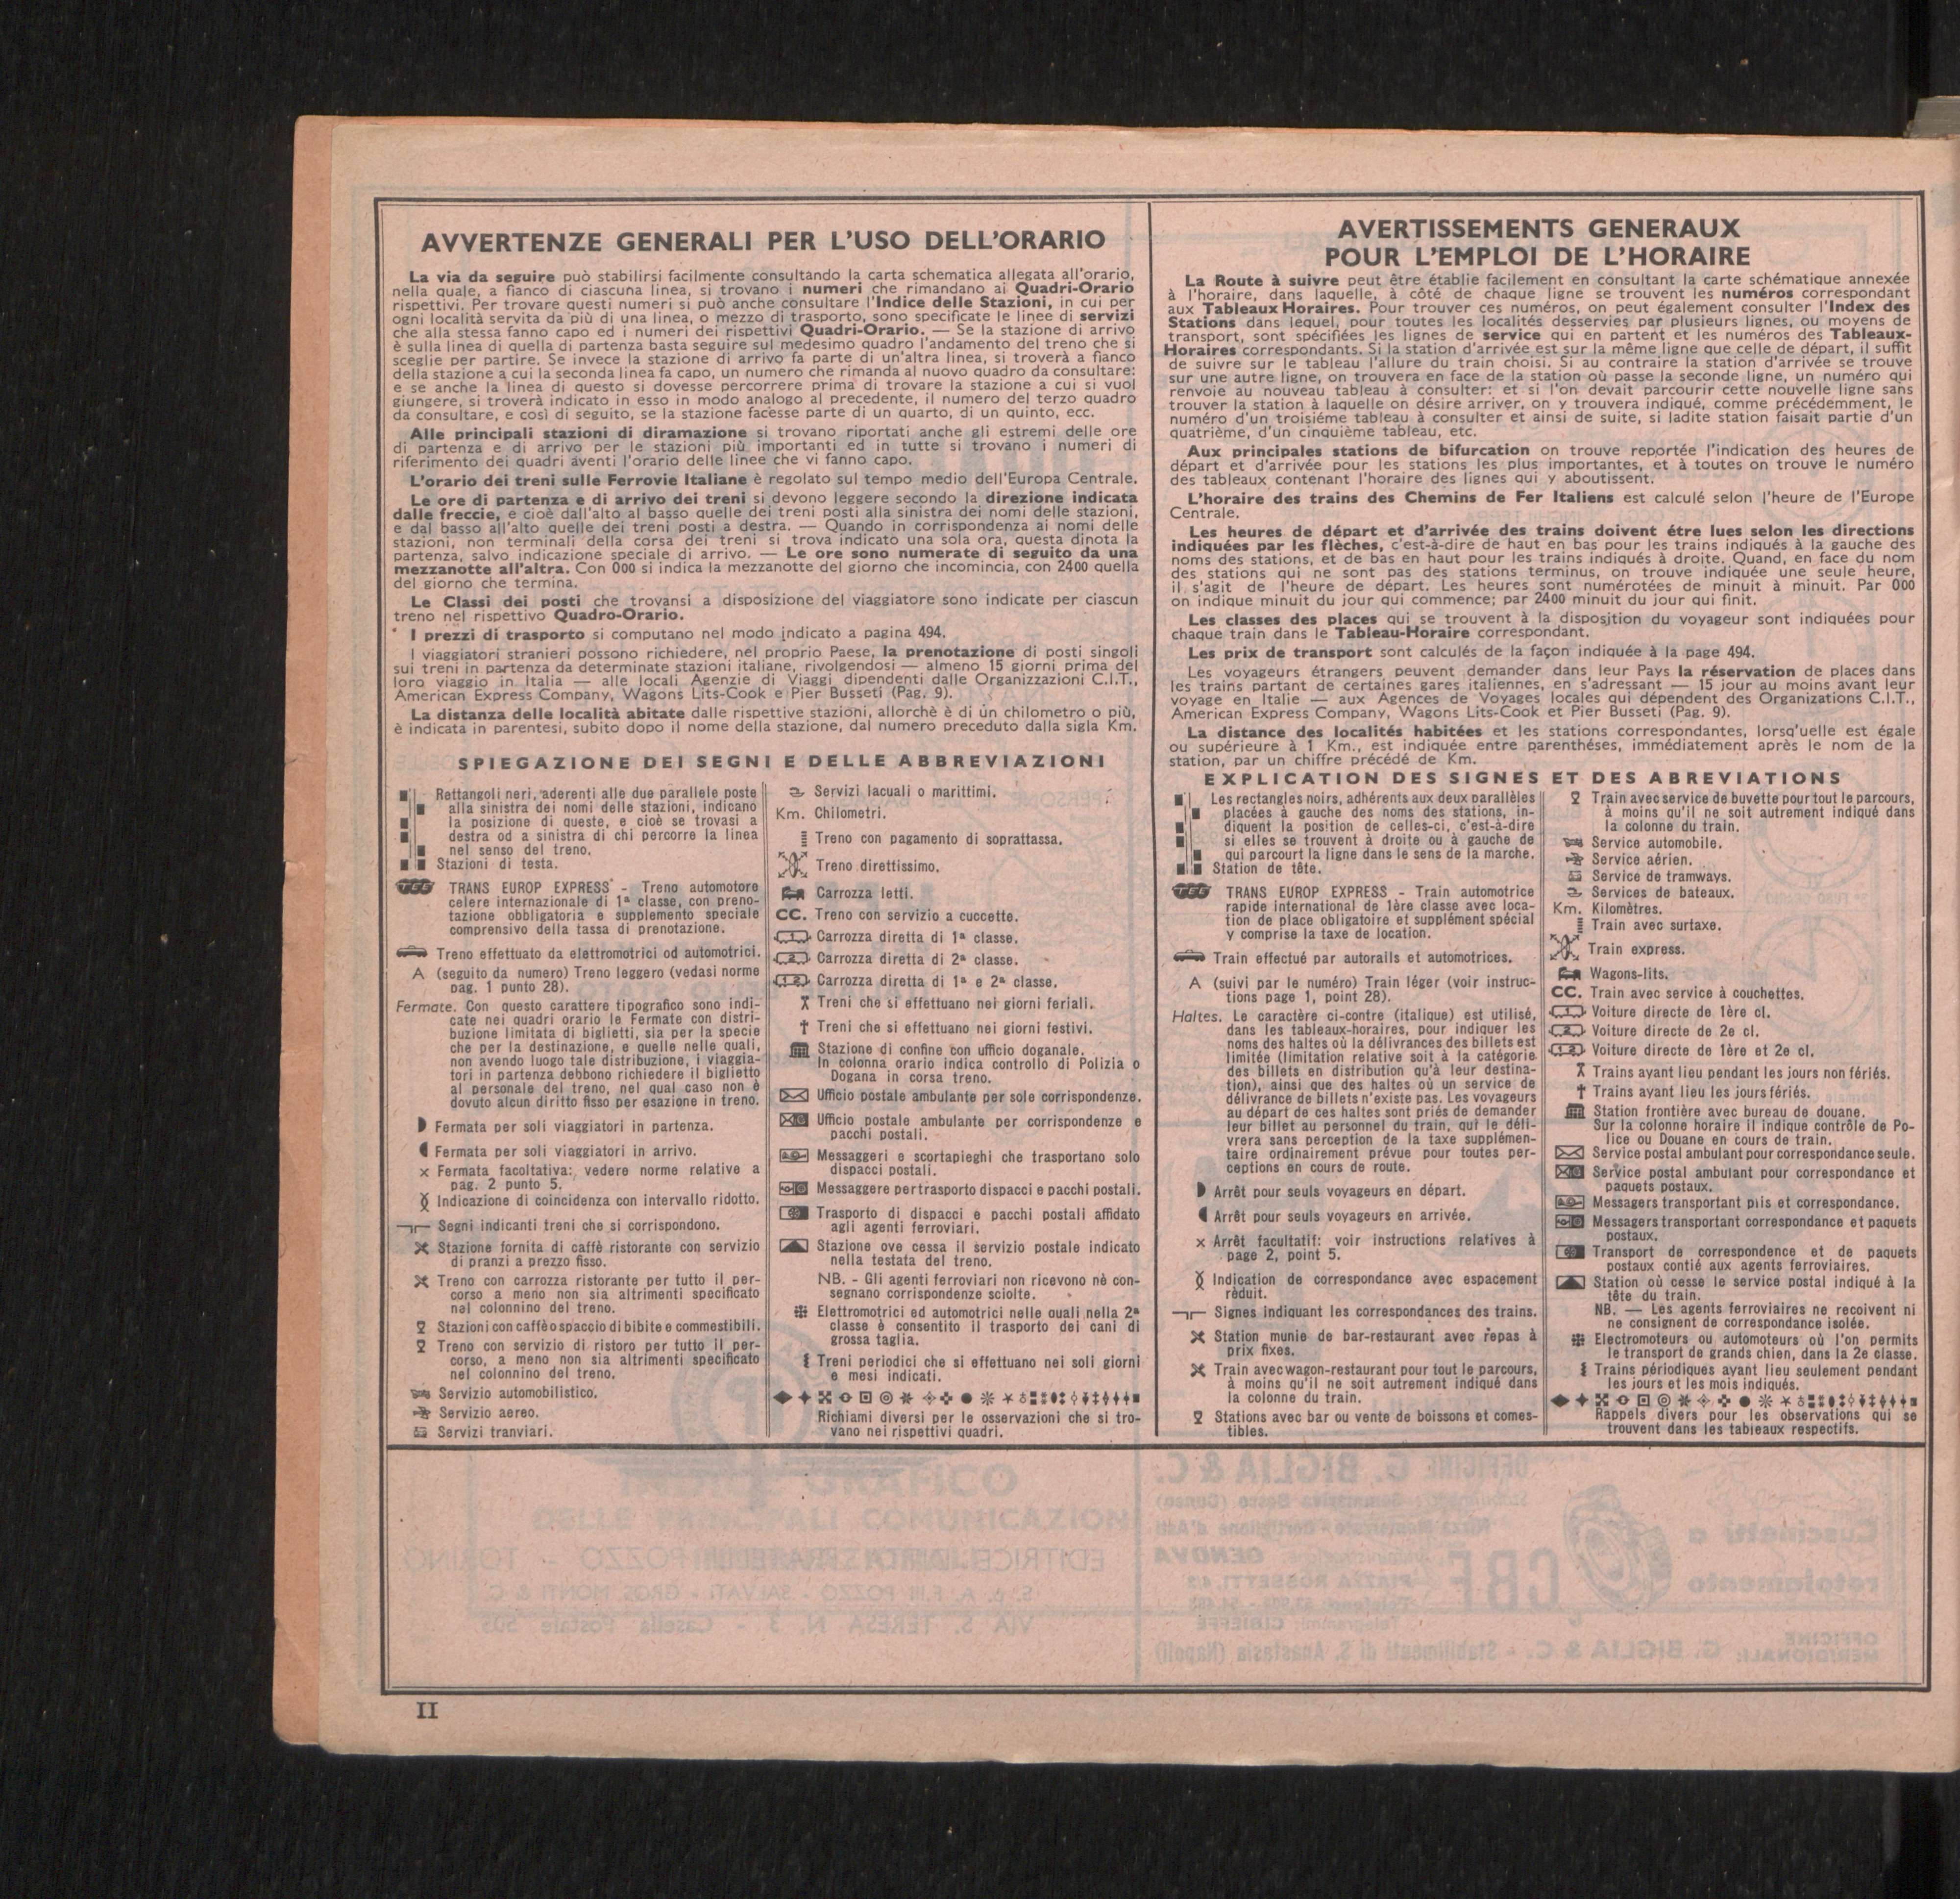 AVVERTENZE GENERALI PER L'USO DELL'ORARIO
La via da seguire può stabilirsi facilmente consultando la carta schematica allegata all'orario,
nella quale, a fianco di ciascuna linea, si trovano i numeri che rimandano ai Quadri-Orario
rispettivi. Per trovare questi numeri si può anche consultare l'Indice delle Stazioni, in cui per
ogni località servita da più di una linea, o mezzo di trasporto, sono specificate le linee di servizi
che alla stessa fanno capo ed i numeri dei rispettivi Quadri-Orario. — Se la stazione di arrivo
è sulla linea di quella di partenza basta seguire sul medesimo quadro l'andamento del treno che si
sceglie per partire. Se invece la stazione di arrivo fa parte di un'altra linea, si troverà a fianco
della stazione a cui la seconda linea fa capo, un numero che rimanda al nuovo quadro da consultare:
e se anche la linea di questo si dovesse percorrere prima di trovare la stazione a cui si vuol
giungere, si troverà indicato in esso in modo analogo al precedente, il numero del terzo quadro
da consultare, e così di seguito, se la stazione facesse parte di un quarto, di un quinto, ecc.
Alle principali stazioni di diramazione si trovano riportati anche gli estremi delle ore
di partenza e di arrivo per le stazioni più importanti ed in tutte si trovano i numeri di
riferimento dei quadri aventi l'orario delle linee che vi fanno capo.
L'orario dei treni sulle Ferrovie Italiane è regolato sul tempo medio dell'Europa Centrale.
Le ore di partenza e di arrivo dei treni si devono leggere secondo la direzione indicata
dalle freccie, e cioè dall'alto al basso quelle dei treni posti alla sinistra dei nomi delle stazioni,
e dal basso all'alto quelle dei treni posti a destra. — Quando in corrispondenza ai nomi delle
stazioni, non terminali della corsa dei treni si trova indicato una sola ora, questa dinota la
partenza, salvo indicazione speciale di arrivo. — Le ore sono numerate di seguito da una
mezzanotte all'altra. Con 000 si indica la mezzanotte del giorno che incomincia, con 2400 quella
del giorno che termina.
Le Classi dei posti che trovansi a disposizione del viaggiatore sono indicate per ciascun
treno nel rispettivo Quadro-Orario.
I prezzi di trasporto si computano nel modo indicato a pagina 494.
I viaggiatori stranieri possono richiedere, nel proprio Paese, la prenotazione di posti singoli
sui treni in partenza da determinate stazioni italiane, rivolgendosi — almeno 15 giorni prima del
loro viaggio in Italia — alle locali Agenzie di Viaggi dipendenti dalle Organizzazioni C.I.T.,
American Express Company, Wagons Lits-Cook e Pier Busseti (Pag. 9).
La distanza delle località abitate dalle rispettive stazioni, allorchè è di un chilometro o più,
è indicata in parentesi, subito dopo il nome della stazione, dal numero preceduto dalla sigla Km.
SPIEGAZIONE DEI SEGNI E DELLE ABBREVIAZIONI
Rettangoli neri, aderenti alle due parallele poste
alla sinistra dei nomi delle stazioni, indicano
la posizione di queste, e cioè se trovasi a
destra od a sinistra di chi percorre la linea
nel senso del treno.
Stazioni di testa.
TEE TRANS EUROP EXPRESS - Treno automotore
celere internazionale di 1ª classe, con preno-
tazione obbligatoria e supplemento speciale
comprensivo della tassa di prenotazione.
Treno effettuato da elettromotrici od automotrici.
A (seguito da numero) Treno leggero (vedasi norme
pag. 1 punto 28).
Fermate. Con questo carattere tipografico sono indi-
cate nei quadri orario le Fermate con distri-
buzione limitata di biglietti, sia per la specie
che per la destinazione, e quelle nelle quali,
non avendo luogo tale distribuzione, i viaggia-
tori in partenza debbono richiedere il biglietto
al personale del treno, nel qual caso non è
dovuto alcun diritto fisso per esazione in treno.
Fermata per soli viaggiatori in partenza.
Fermata per soli viaggiatori in arrivo.
× Fermata facoltativa: vedere norme relative a
pag. 2 punto 5.
Indicazione di coincidenza con intervallo ridotto.
Segni indicanti treni che si corrispondono.
Stazione fornita di caffè ristorante con servizio
di pranzi a prezzo fisso.
Treno con carrozza ristorante per tutto il per-
corso a meno non sia altrimenti specificato
nel colonnino del treno.
Stazioni con caffè o spaccio di bibite e commestibili.
Treno con servizio di ristoro per tutto il per-
corso, a meno non sia altrimenti specificato
nel colonnino del treno.
Servizio automobilistico.
Servizio aereo.
Servizi tranviari.
Servizi lacuali o marittimi.
Km. Chilometri.
Treno con pagamento di soprattassa.
Treno direttissimo.
Carrozza letti.
CC. Treno con servizio a cuccette.
1 Carrozza diretta di 1ª classe.
2 Carrozza diretta di 2ª classe.
1-2 Carrozza diretta di 1ª e 2ª classe.
Treni che si effettuano nei giorni feriali.
† Treni che si effettuano nei giorni festivi.
Stazione di confine con ufficio doganale.
In colonna orario indica controllo di Polizia o
Dogana in corsa treno.
Ufficio postale ambulante per sole corrispondenze.
Ufficio postale ambulante per corrispondenze e
pacchi postali.
Messaggeri e scortapieghi che trasportano solo
dispacci postali.
Messaggere per trasporto dispacci e pacchi postali.
Trasporto di dispacci e pacchi postali affidato
agli agenti ferroviari.
Stazione ove cessa il servizio postale indicato
nella testata del treno.
NB. - Gli agenti ferroviari non ricevono nè con-
segnano corrispondenze sciolte.
Elettromotrici ed automotrici nelle quali nella 2ª
classe è consentito il trasporto dei cani di
grossa taglia.
Treni periodici che si effettuano nei soli giorni
e mesi indicati.
Richiami diversi per le osservazioni che si tro-
vano nei rispettivi quadri.
AVERTISSEMENTS GENERAUX
POUR L'EMPLOI DE L'HORAIRE
La Route à suivre peut être établie facilement en consultant la carte schématique annexée
à l'horaire, dans laquelle, à côté de chaque ligne se trouvent les numéros correspondant
aux Tableaux Horaires. Pour trouver ces numéros, on peut également consulter l'Index des
Stations dans lequel, pour toutes les localités desservies par plusieurs lignes, ou moyens de
transport, sont spécifiées les lignes de service qui en partent et les numéros des Tableaux-
Horaires correspondants. Si la station d'arrivée est sur la même ligne que celle de départ, il suffit
de suivre sur le tableau l'allure du train choisi. Si au contraire la station d'arrivée se trouve
sur une autre ligne, on trouvera en face de la station où passe la seconde ligne, un numéro qui
renvoie au nouveau tableau à consulter: et si l'on devait parcourir cette nouvelle ligne sans
trouver la station à laquelle on désire arriver, on y trouvera indiqué, comme précédemment, le
numéro d'un troisiéme tableau à consulter et ainsi de suite, si ladite station faisait partie d'un
quatrième, d'un cinquième tableau, etc.
Aux principales stations de bifurcation on trouve reportée l'indication des heures de
départ et d'arrivée pour les stations les plus importantes, et à toutes on trouve le numéro
des tableaux contenant l'horaire des lignes qui y aboutissent.
L'horaire des trains des Chemins de Fer Italiens est calculé selon l'heure de l'Europe
Centrale.
Les heures de départ et d'arrivée des trains doivent étre lues selon les directions
indiquées par les flèches, c'est-à-dire de haut en bas pour les trains indiqués à la gauche des
noms des stations, et de bas en haut pour les trains indiqués à droite. Quand, en face du nom
des stations qui ne sont pas des stations terminus, on trouve indiquée une seule heure,
il s'agit de l'heure de départ. Les heures sont numérotées de minuit à minuit. Par 000
on indique minuit du jour qui commence; par 2400 minuit du jour qui finit.
Les classes des places qui se trouvent à la disposition du voyageur sont indiquées pour
chaque train dans le Tableau-Horaire correspondant.
Les prix de transport sont calculés de la façon indiquée à la page 494.
Les voyageurs étrangers peuvent demander dans leur Pays la réservation de places dans
les trains partant de certaines gares italiennes, en s'adressant — 15 jour au moins avant leur
voyage en Italie — aux Agences de Voyages locales qui dépendent des Organizations C.I.T.,
American Express Company, Wagons Lits-Cook et Pier Busseti (Pag. 9).
La distance des localités habitées et les stations correspondantes, lorsq'uelle est égale
ou supérieure à 1 Km., est indiquée entre parenthéses, immédiatement après le nom de la
station, par un chiffre précédé de Km.
EXPLICATION DES SIGNES ET DES ABREVIATIONS
Les rectangles noirs, adhérents aux deux parallèles
placées à gauche des noms des stations, in-
diquent la position de celles-ci, c'est-à-dire
si elles se trouvent à droite ou à gauche de
qui parcourt la ligne dans le sens de la marche.
Station de tête.
TEE TRANS EUROP EXPRESS - Train automotrice
rapide international de 1ère classe avec loca-
tion de place obligatoire et supplément spécial
y comprise la taxe de location.
Train effectué par autorails et automotrices.
A (suivi par le numéro) Train léger (voir instruc-
tions page 1, point 28).
Haltes. Le caractère ci-contre (italique) est utilisé,
dans les tableaux-horaires, pour indiquer les
noms des haltes où la délivrances des billets est
limitée (limitation relative soit à la catégorie
des billets en distribution qu'à leur destina-
tion), ainsi que des haltes où un service de
délivrance de billets n'existe pas. Les voyageurs
au départ de ces haltes sont priés de demander
leur billet au personnel du train, qui le déli-
vrera sans perception de la taxe supplémen-
taire ordinairement prévue pour toutes per-
ceptions en cours de route.
Arrêt pour seuls voyageurs en départ.
Arrêt pour seuls voyageurs en arrivée.
× Arrêt facultatif: voir instructions relatives à
page 2, point 5.
Indication de correspondance avec espacement
rèduit.
Signes indiquant les correspondances des trains.
Station munie de bar-restaurant avec repas à
prix fixes.
Train avec wagon-restaurant pour tout le parcours,
à moins qu'il ne soit autrement indiqué dans
la colonne du train.
Stations avec bar ou vente de boissons et comes-
tibles.
Train avec service de buvette pour tout le parcours,
à moins qu'il ne soit autrement indiqué dans
la colonne du train.
Service automobile.
Service aérien.
Service de tramways.
Services de bateaux.
Km. Kilomètres.
Train avec surtaxe.
Train express.
Wagons-lits.
CC. Train avec service à couchettes.
1 Voiture directe de 1ère cl.
2 Voiture directe de 2e cl.
1-2 Voiture directe de 1ère et 2e cl.
Trains ayant lieu pendant les jours non fériés.
† Trains ayant lieu les jours fériés.
Station frontière avec bureau de douane.
Sur la colonne horaire il indique contrôle de Po-
lice ou Douane en cours de train.
Service postal ambulant pour correspondance seule.
Service postal ambulant pour correspondance et
paquets postaux.
Messagers transportant plis et correspondance.
Messagers transportant correspondance et paquets
postaux.
Transport de correspondence et de paquets
postaux contié aux agents ferroviaires.
Station où cesse le service postal indiqué à la
tête du train.
NB. — Les agents ferroviaires ne recoivent ni
ne consignent de correspondance isolée.
Electromoteurs ou automoteurs où l'on permits
le transport de grands chien, dans la 2e classe.
Trains périodiques ayant lieu seulement pendant
les jours et les mois indiqués.
Rappels divers pour les observations qui se
trouvent dans les tableaux respectifs.
II